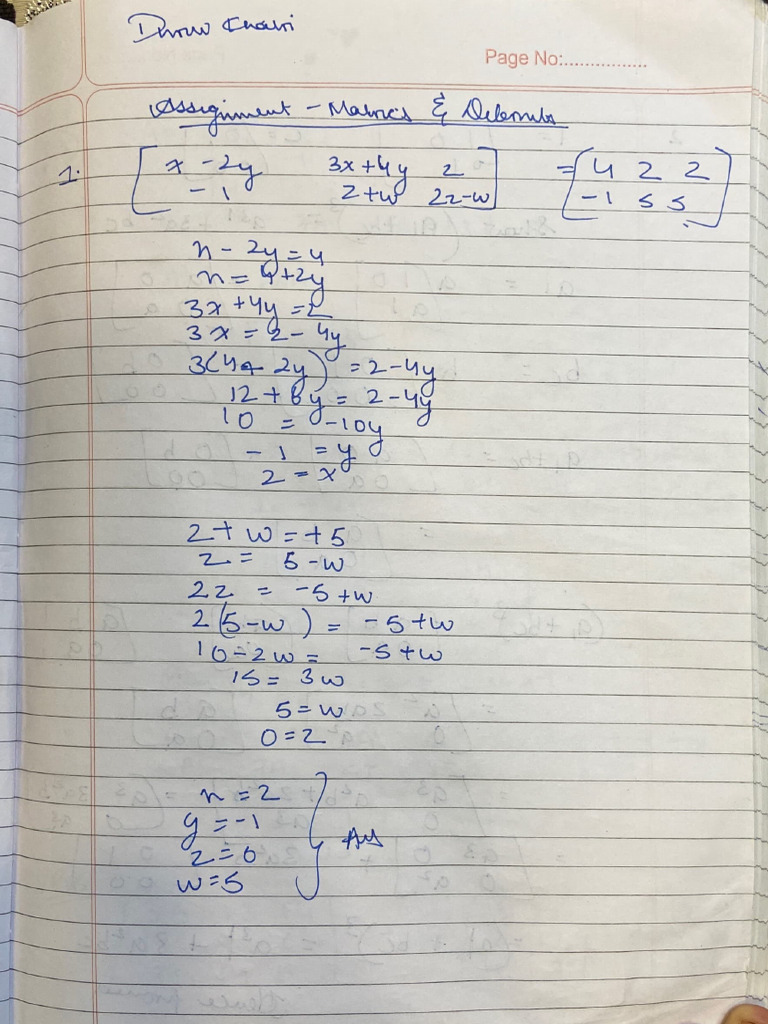 Page No:................
Assignment - Matrics &
1. [ x - 2y 3x+4y 2 ] = [ 4 2 2 ]
[ -1 z+w 2z-w ] [ -1 5 5 ]
x - 2y = 4
x = 4+2y
3x +4y = 2
3x = 2 - 4y
3(4+ 2y) = 2-4y
12 + 6y = 2-4y
10 = -10y
-1 = y
2 = x
z + w = +5
z = 5-w
2z = -5+w
2(5-w) = -5+w
10-2w = -5+w
15 = 3w
5 = w
0 = z
x = 2
y = -1
z = 0
w = 5
Ans